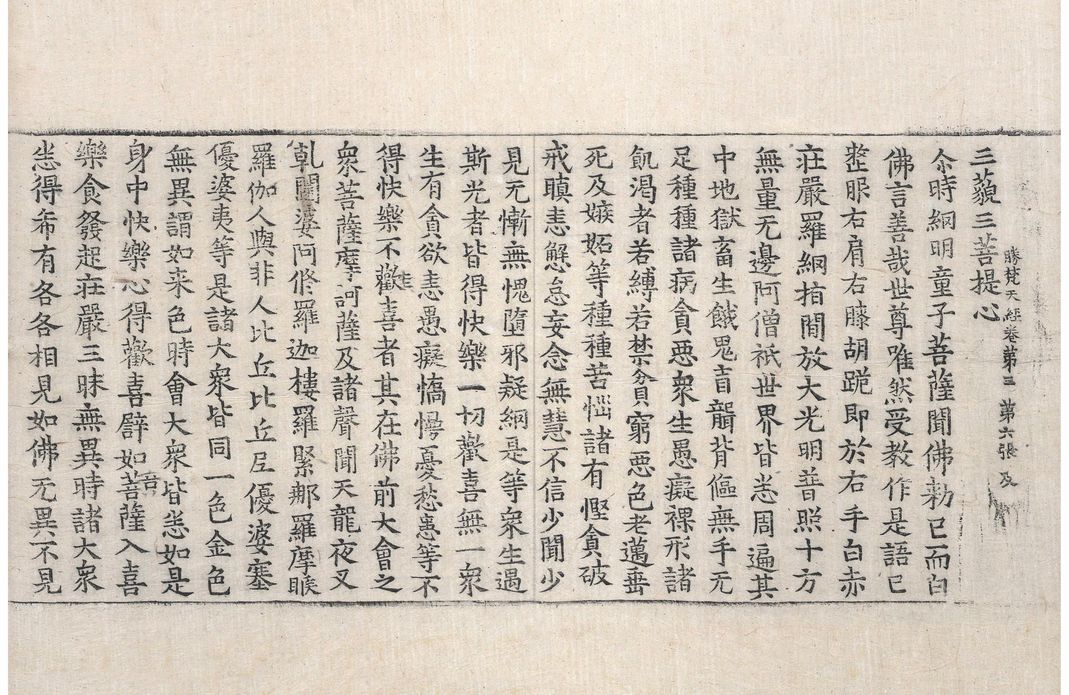 勝梵天經卷第三 第六張 及
三藐三菩提心
尒時網明童子菩薩聞佛勅已而白
佛言善哉世尊唯然受教作是語已
整服右肩右膝胡跪即於右手白赤
莊嚴羅網指間放大光明普照十方
無量无邊阿僧祇世界皆悉周遍其
中地獄畜生餓鬼盲聾背傴無手无
足種種諸病貪惡衆生愚癡裸形諸
飢渴者若縛若禁貧窮惡色老邁垂
死及嫉妬等種種苦惱諸有慳貪破
戒瞋恚懈怠妄念無慧不信少聞少
見无慚無愧墮邪疑網是等衆生遇
斯光者皆得快樂一切歡喜無一衆
生有貪欲恚愚癡憍慢憂愁恚等不
得快樂不歡喜者其在佛前大會之
衆菩薩摩訶薩及諸聲聞天龍夜叉
乹闥婆阿修羅迦樓羅緊那羅摩睺
羅伽人與非人比丘比丘尼優婆塞
優婆夷等是諸大衆皆同一色金色
無異謂如来色時會大衆皆悉如是
身中快樂心得歡喜譬如菩薩入喜
樂食發起莊嚴三昧無異時諸大衆
悉得希有各各相見如佛无異不見